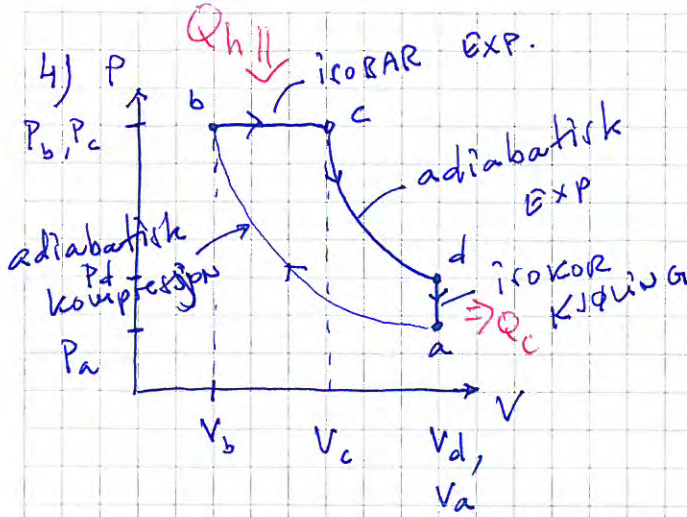 4) P
Qh
isoBAR EXP.
b
c
Pb, Pc
adiabatisk
EXP
adiabatisk
kompresjon
Pd
d
isoKOR
KJØLING
Qc
a
Pa
V
Vb
Vc
Vd,
Va